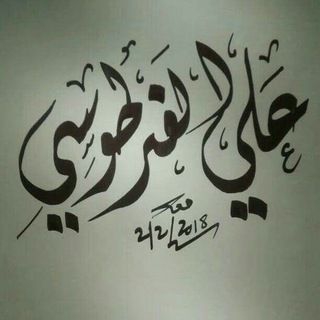 علي الفرطوسي
2/2/2018